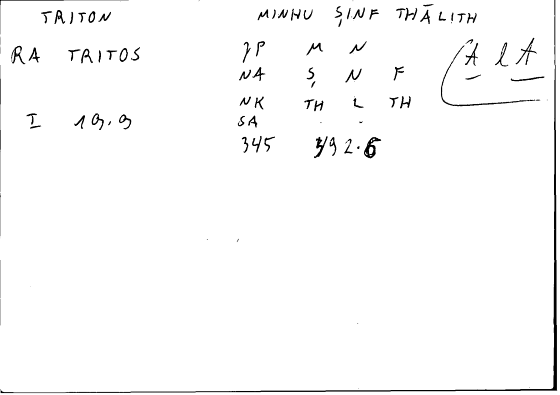 TRITON MINHU ṢINF THĀLITH
RA TRITOS JP M N A l A
NA Ṣ N F
NK TH L TH
I 19.9 SA . .
345 392.6